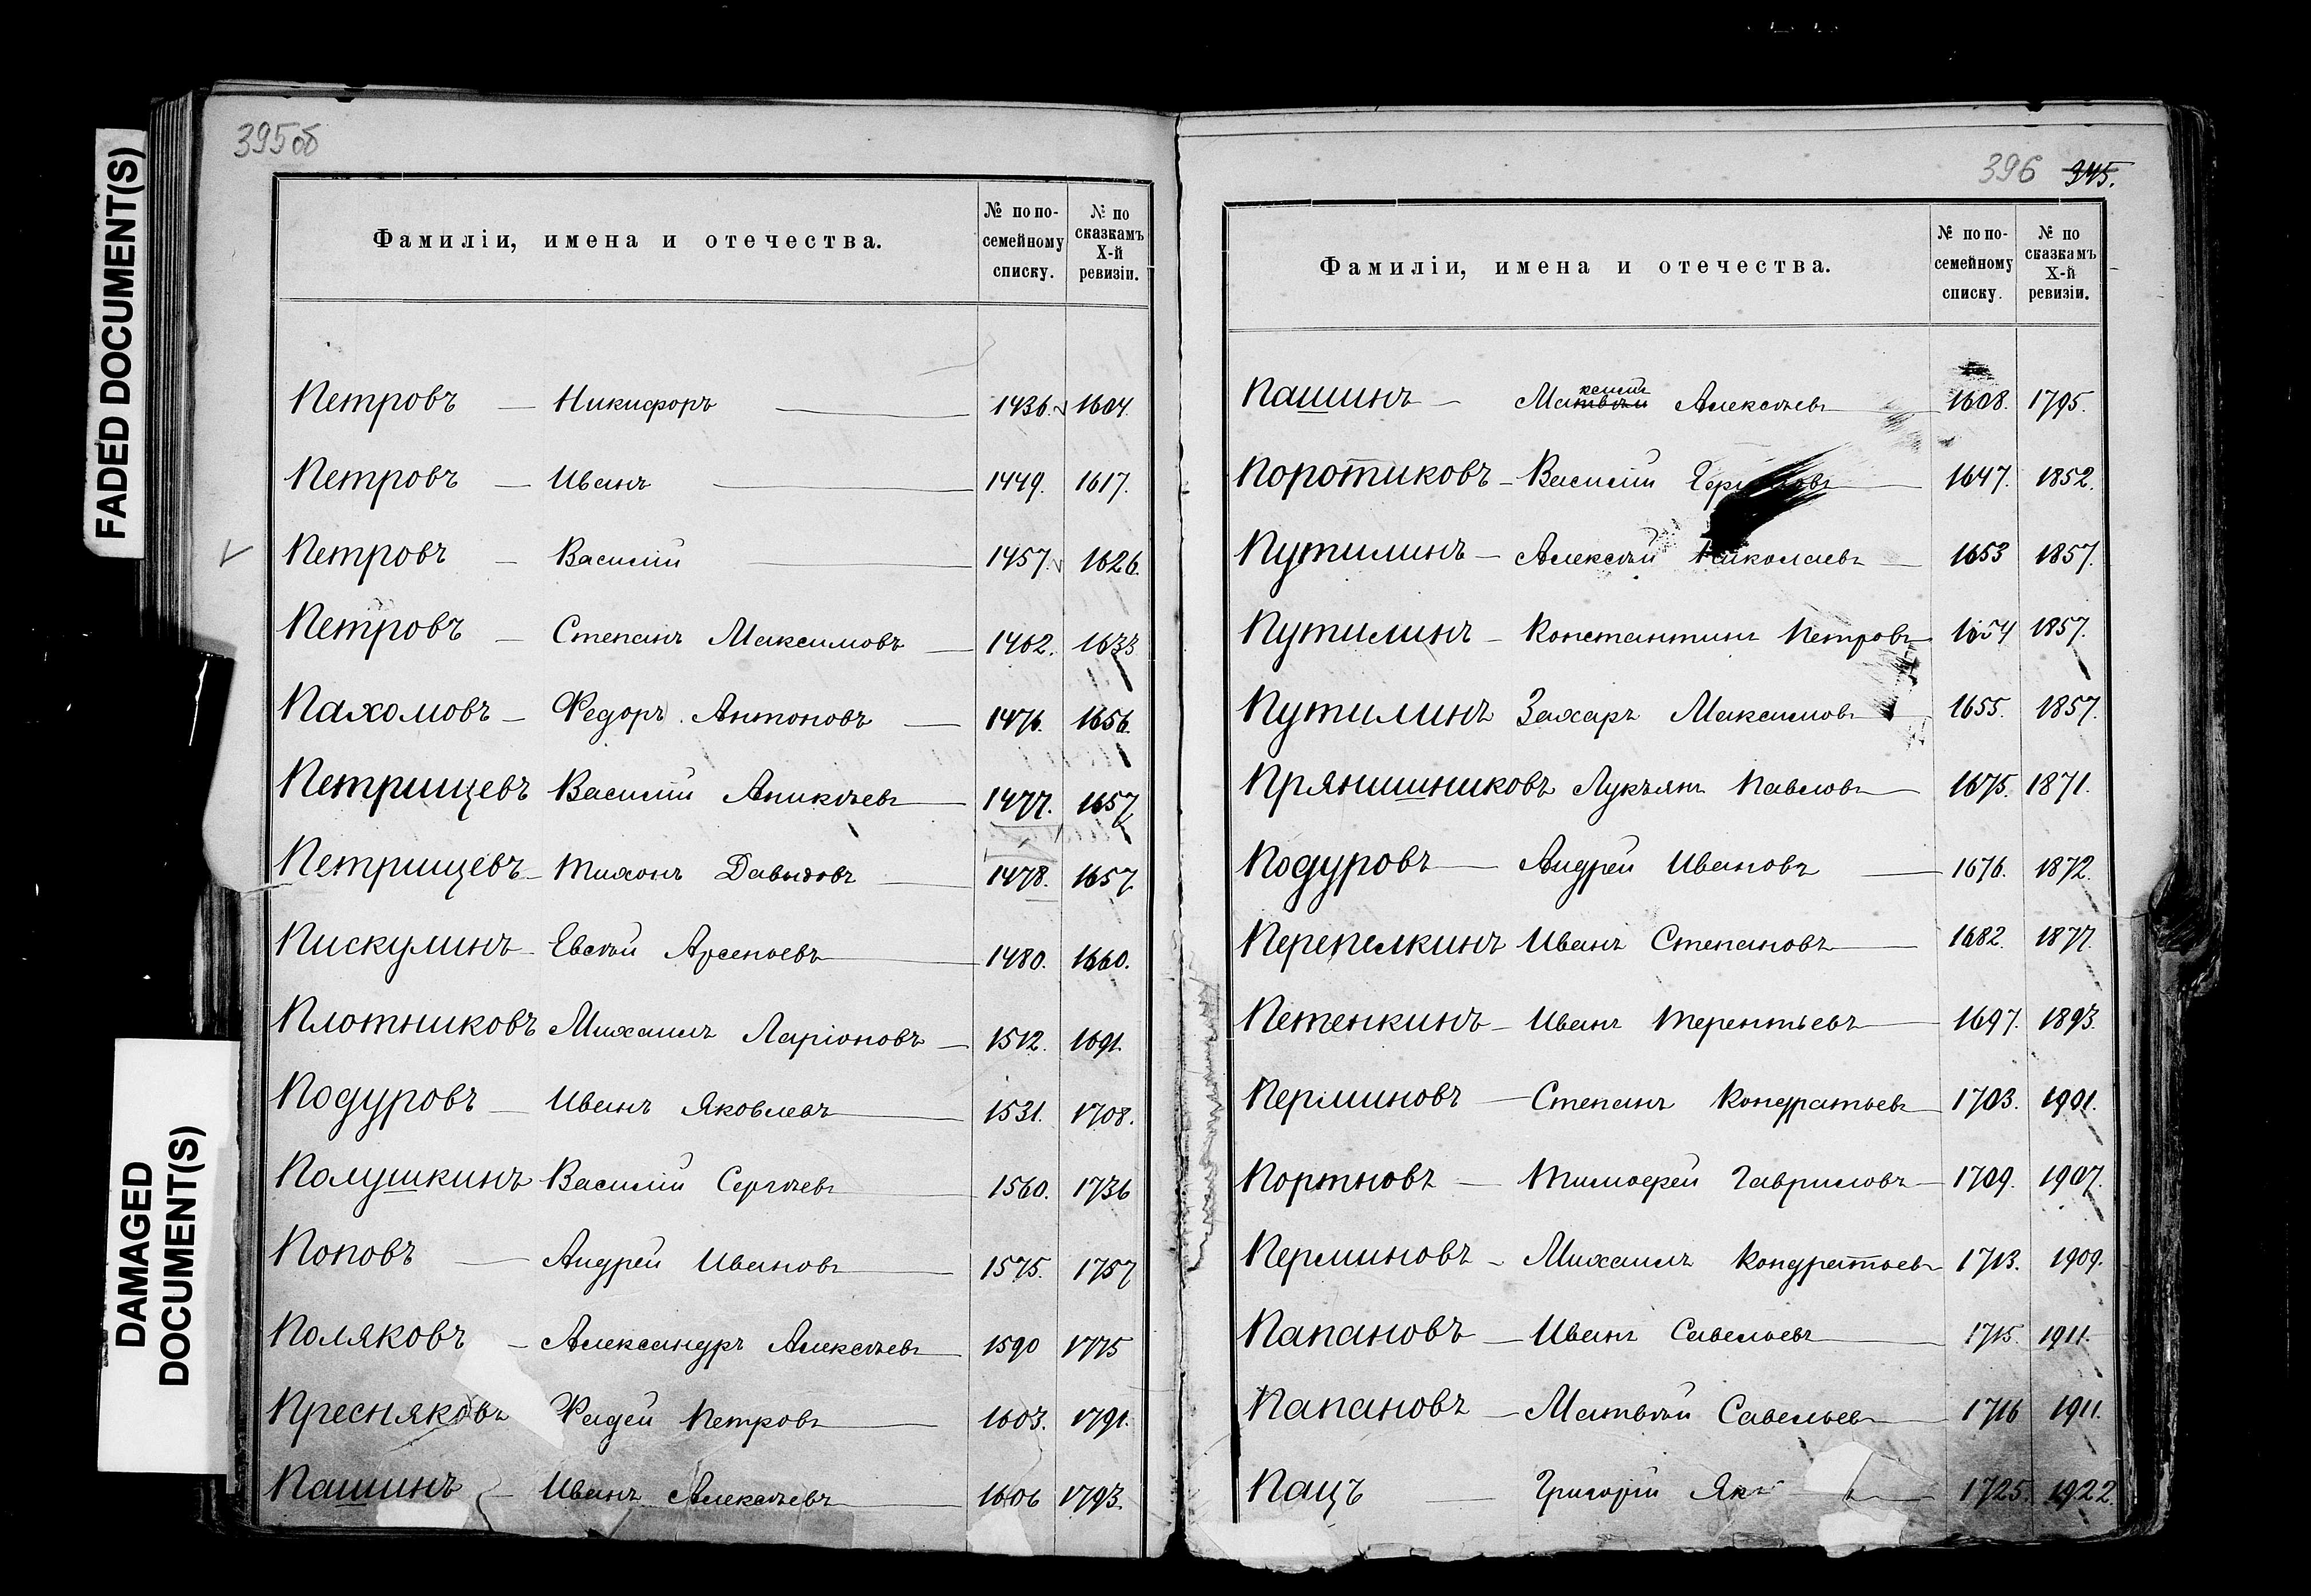 FADED DOCUMENT(S)
DAMAGED
DOCUMENT(S)
395об
Фамиліи, имена и отечества.
№ по по-
семейному
списку.
№ по
сказкамъ
X-й
ревизіи.
Петровъ — Никифоръ — 1436. 1604.
Петровъ — Иванъ — 1449. 1617.
Петровъ — Василій — 1457. 1626.
Петровъ — Степанъ Максимовъ — 1462. 1633
Пахомовъ — Ѳедоръ Антоновъ — 1476. 1656.
Петрищевъ Василій Аникѣевъ — 1477. 1657
Петрищевъ — Тихонъ Давыдовъ — 1478. 1657
Пискулинъ — Евсѣй Арсеньевъ — 1480. 1660.
Плотниковъ Михаилъ Ларіоновъ — 1512. 1691.
Подуровъ — Иванъ Яковлевъ — 1531. 1708.
Полушкинъ Василій Сергѣевъ — 1560. 1736
Поповъ — Андрей Ивановъ — 1575. 1757
Поляковъ — Александръ Алексѣевъ — 1590 1775
Пресняковъ Ѳадей Петровъ — 1603. 1791.
Пашинъ — Иванъ Алексѣевъ — 1606 1793.
396 345.
Фамиліи, имена и отечества.
№ по по-
семейному
списку.
№ по
сказкамъ
X-й
ревизіи.
ксимъ
Пашинъ — Матвѣй Алексѣевъ — 1608. 1795.
Поротиковъ — Василій — 1647. 1852.
Путилинъ — Алексѣй Николаевъ — 1653 1857.
Путилинъ — Константинъ Петровъ — 1654 1857.
Путилинъ Захаръ Максимовъ 1655. 1857.
Прянишниковъ Лукъянъ Павловъ — 1675. 1871.
Подуровъ — Андрей Ивановъ — 1676. 1872.
Перепелкинъ Иванъ Степановъ — 1682. 1877.
Петенкинъ — Иванъ Терентьевъ — 1697. 1893.
Перминовъ — Степанъ Кондратьевъ — 1703. 1901.
Портновъ — Тимофей Гавриловъ — 1709. 1907.
Перминовъ — Михаилъ Кондратьевъ — 1713. 1909.
Папановъ — Иванъ Савельевъ — 1715. 1911.
Папановъ — Матвѣй Савельевъ — 1716 1911.
Пацъ — Григорій — 1725. 1922.